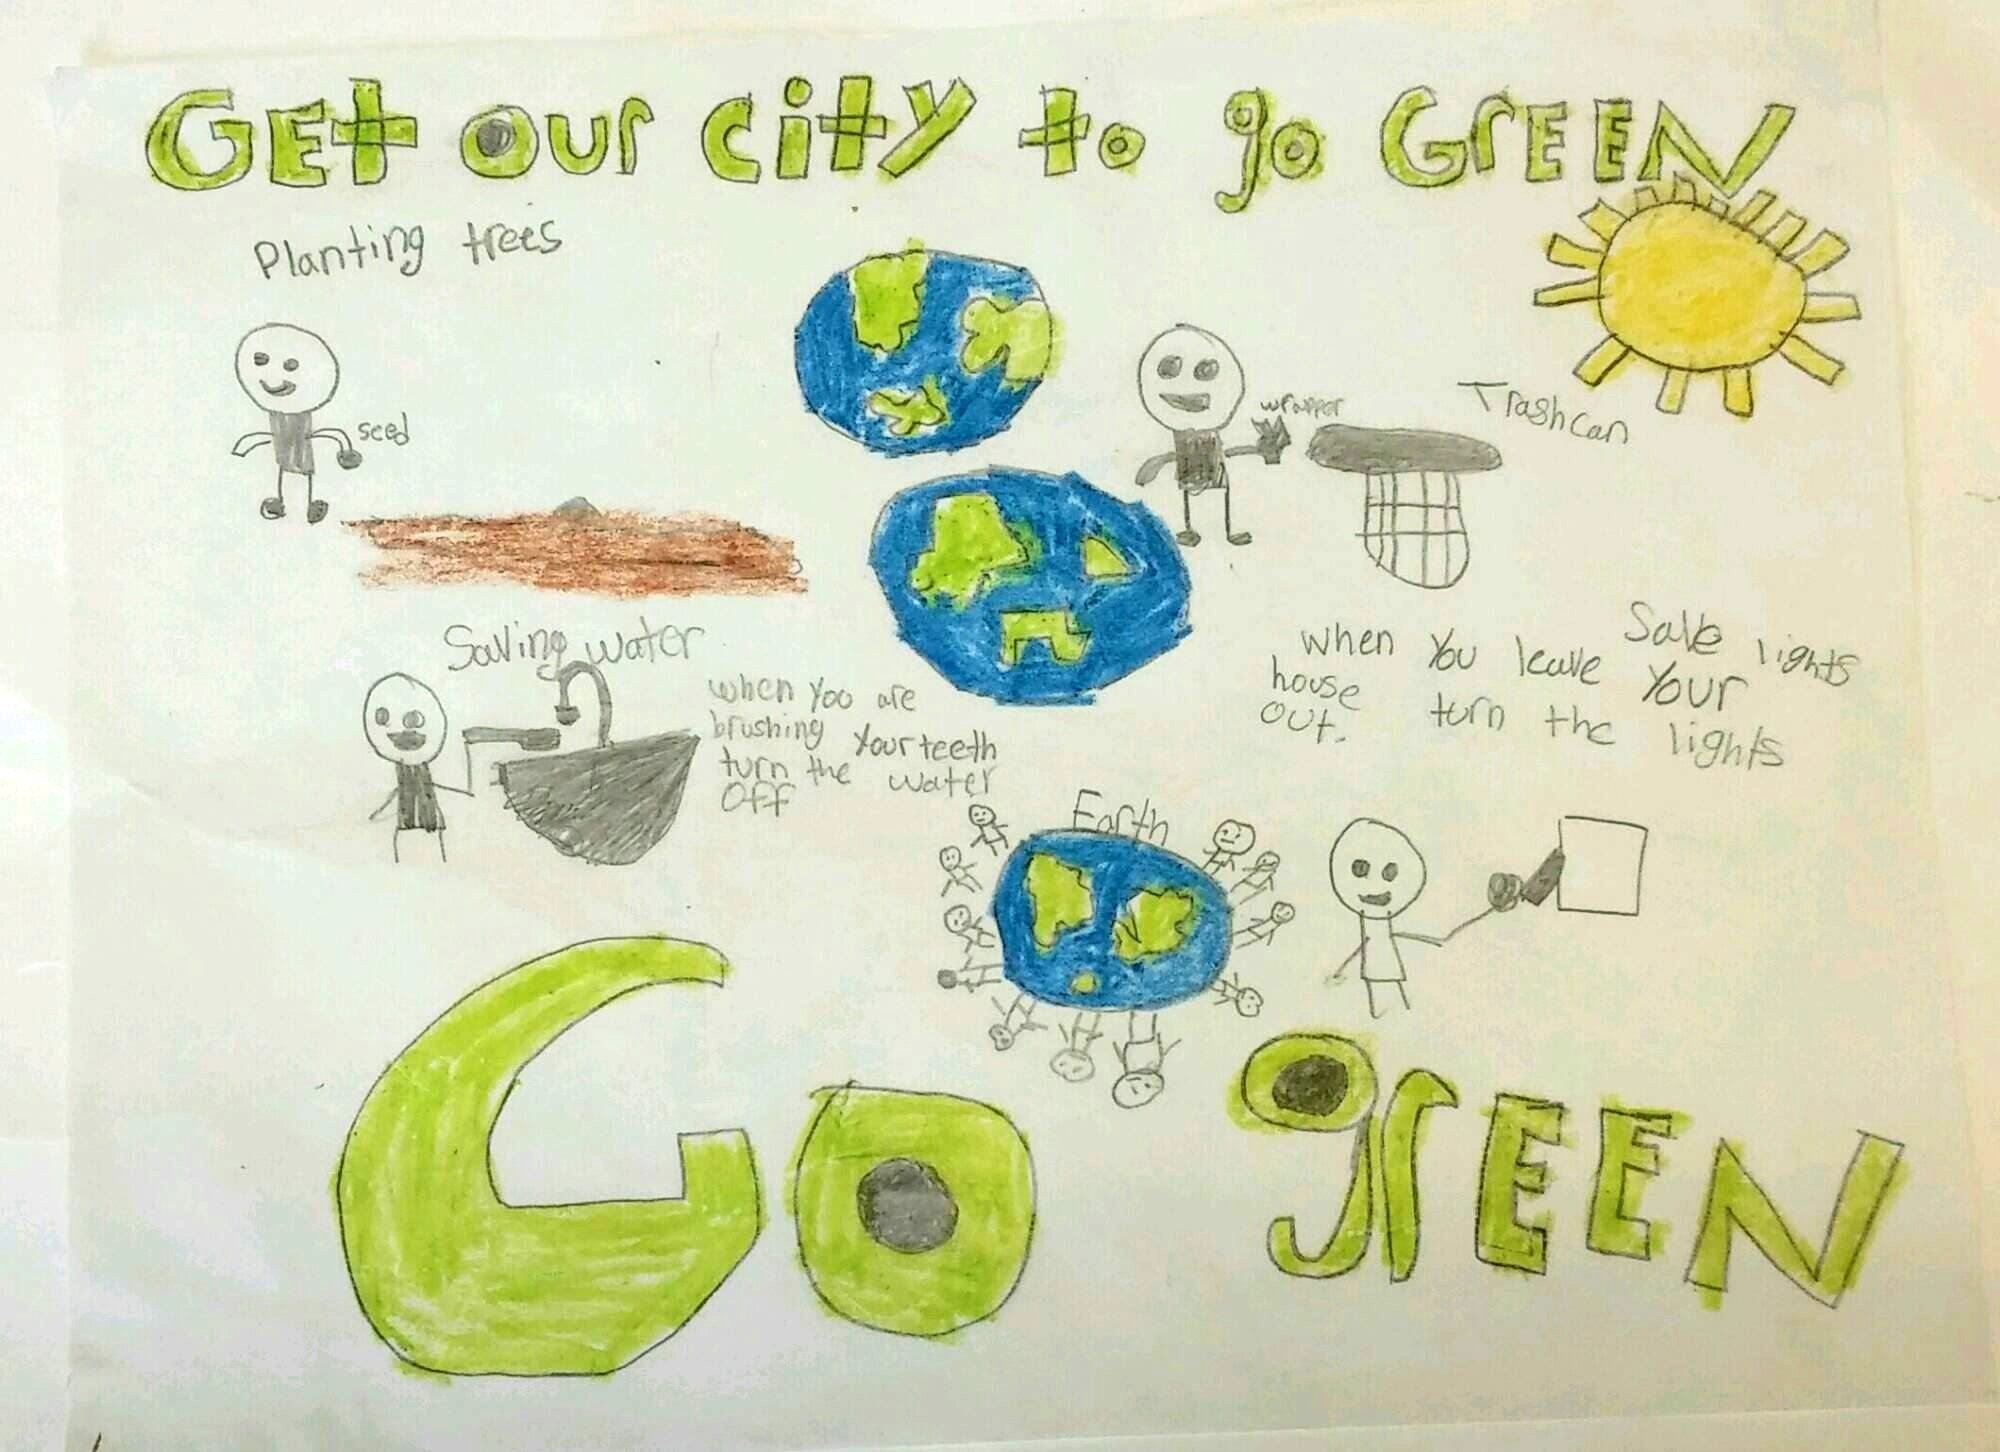 GET our city to go GrEEN
Planting trees
seed
wrapper
Trashcan
Saving water
when you are
brushing your teeth
turn the water
off
Save lights
when you leave your
house turn the lights
out.
Earth
Go grEEN